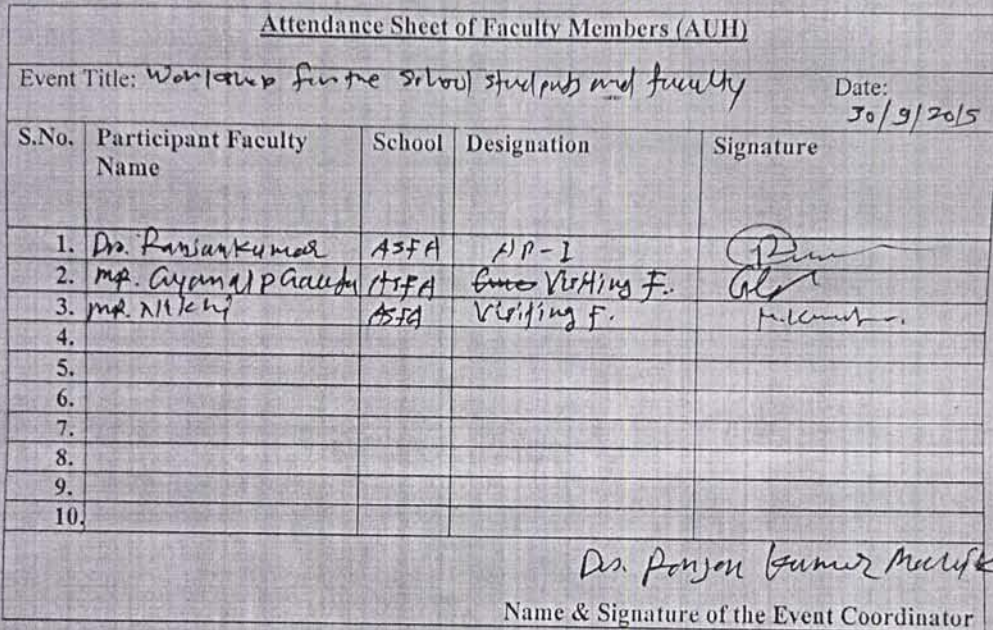 Attendance Sheet of Faculty Members (AUH)
Event Title: Workshop for the School students and faculty
Date:
30/9/2015
S.No. Participant Faculty Name School Designation Signature
1. Dr. Ranjan Kumar ASFA AP-I
2. Mr. P ASFA Visiting F.
3. Mr. ASFA Visiting F.
4.
5.
6.
7.
8.
9.
10.
Dr. Ranjan Kumar
Name & Signature of the Event Coordinator